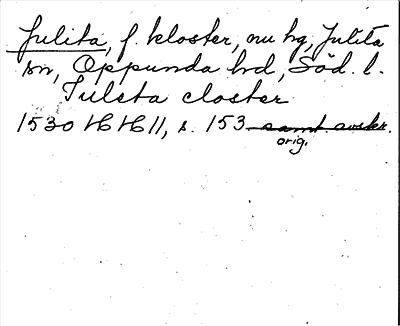 Julita, f. kloster, nu hg, Julita
sn, Oppunda hd, Söd. l.
Julsta closter
1530 HH 11, s. 153 samt. avskr.
orig.